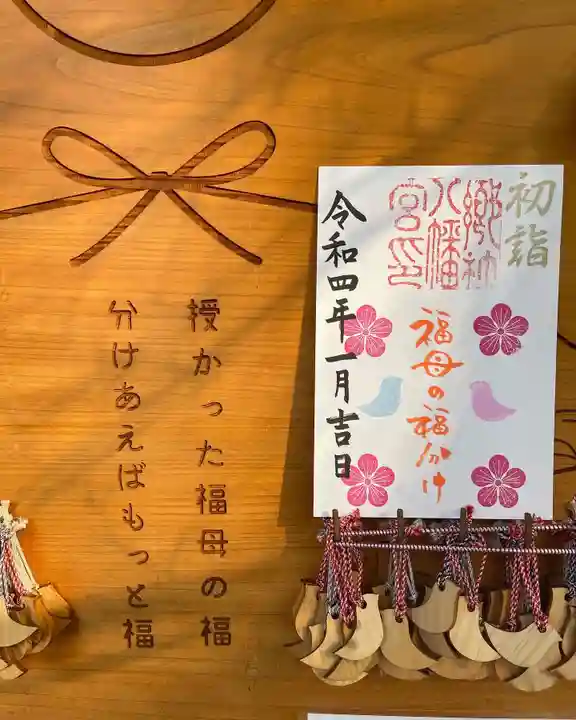 初詣
郷社
八幡
宮印
福母の福分け
令和四年一月吉日
授かった福母の福
分けあえばもっと福